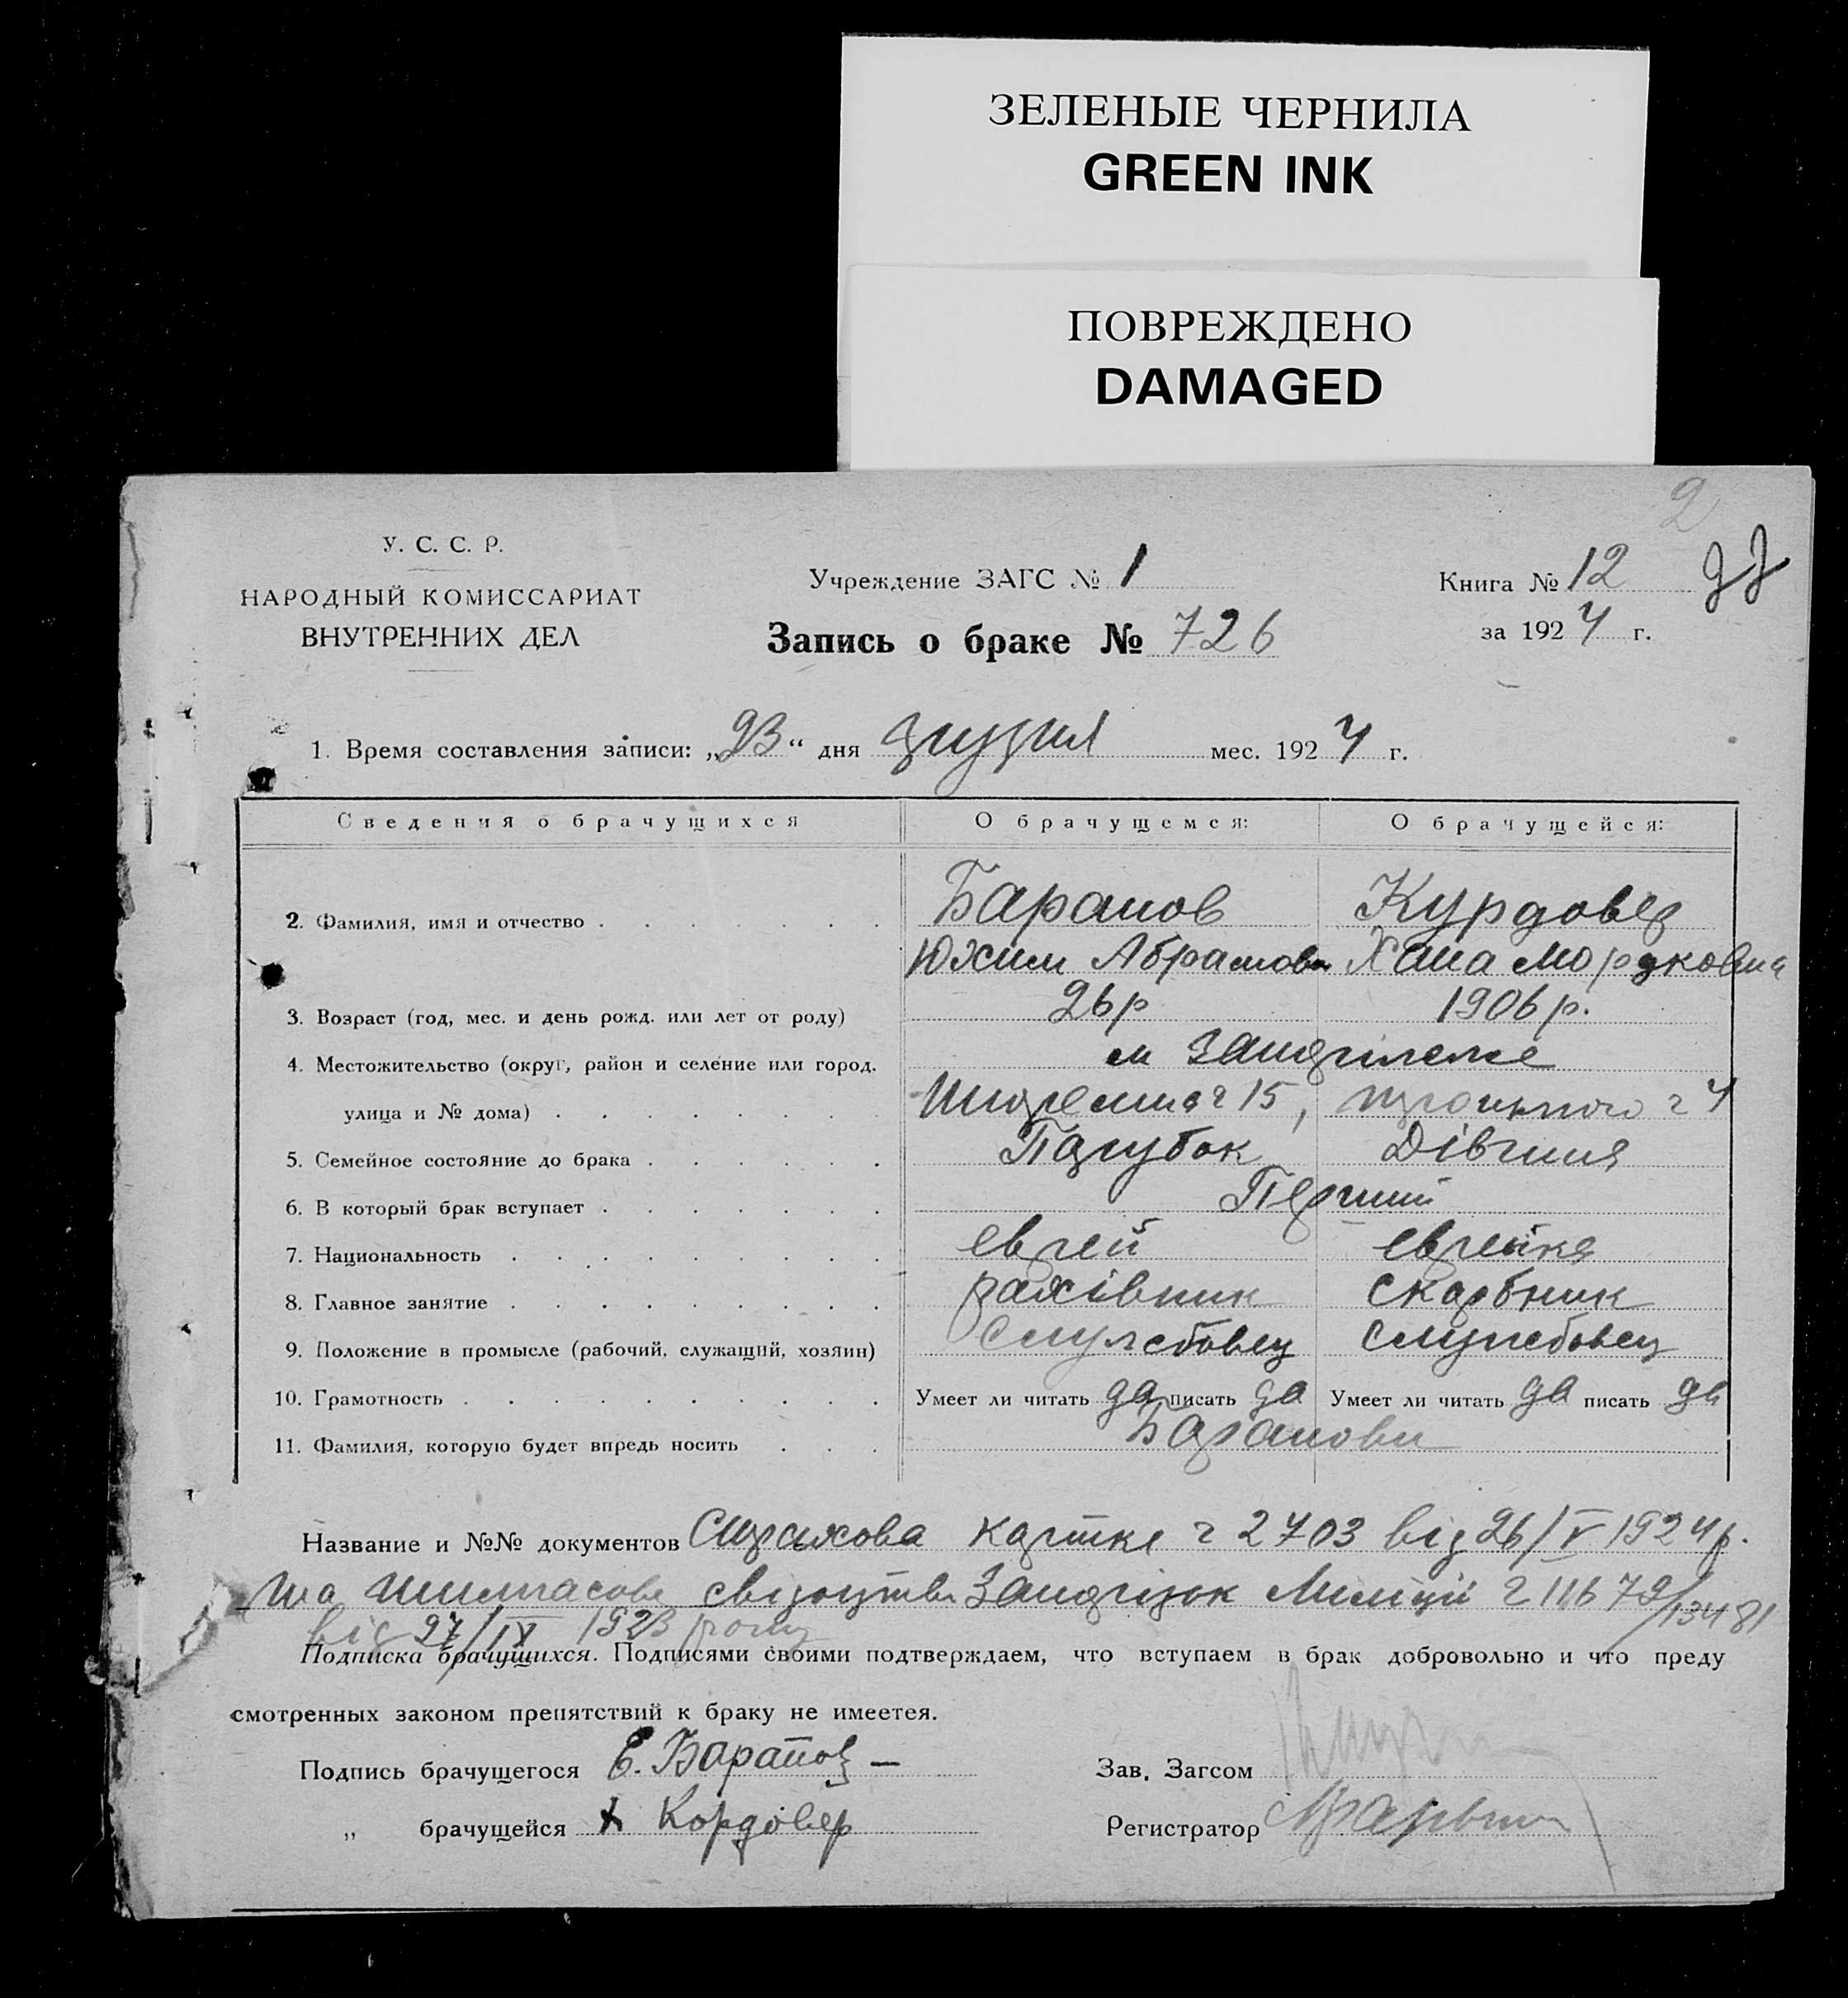 ЗЕЛЕНЫЕ ЧЕРНИЛА
GREEN INK
ПОВРЕЖДЕНО
DAMAGED
2
У. С. С. Р.
НАРОДНЫЙ КОМИССАРИАТ
ВНУТРЕННИХ ДЕЛ
Учреждение ЗАГС № 1
Запись о браке № 726
Книга № 12
за 1924 г.
1. Время составления записи: „23“ дня грудня мес. 1924 г.
Сведения о брачущихся О брачущемся: О брачущейся:
2. Фамилия, имя и отчество Баранов Курдовер
Юхим Абрамов Хана Мордковна
3. Возраст (год, мес. и день рожд. или лет от роду) 26 р 1906 р.
4. Местожительство (округ, район и селение или город. м
улица и № дома) ч 15, ч 4
5. Семейное состояние до брака Парубок Дівчина
6. В который брак вступает Перший
7. Национальность еврей еврейка
8. Главное занятие рахівник скарбник
9. Положение в промысле (рабочий, служащий, хозяин) службовец службовец
10. Грамотность Умеет ли читать да писать да Умеет ли читать да писать да
11. Фамилия, которую будет впредь носить Баранови
Название и №№ документов Страхова картка ч 2703 від 26/V 1924 р.
та свідоцтво Міліції ч 11672/13481
від 27/IV 1923 року
Подписка брачущихся. Подписями своими подтверждаем, что вступаем в брак добровольно и что преду
смотренных законом препятствий к браку не имеется.
Подпись брачущегося Е. Баранов
Зав. Загсом
„ брачущейся Х Кордовер
Регистратор